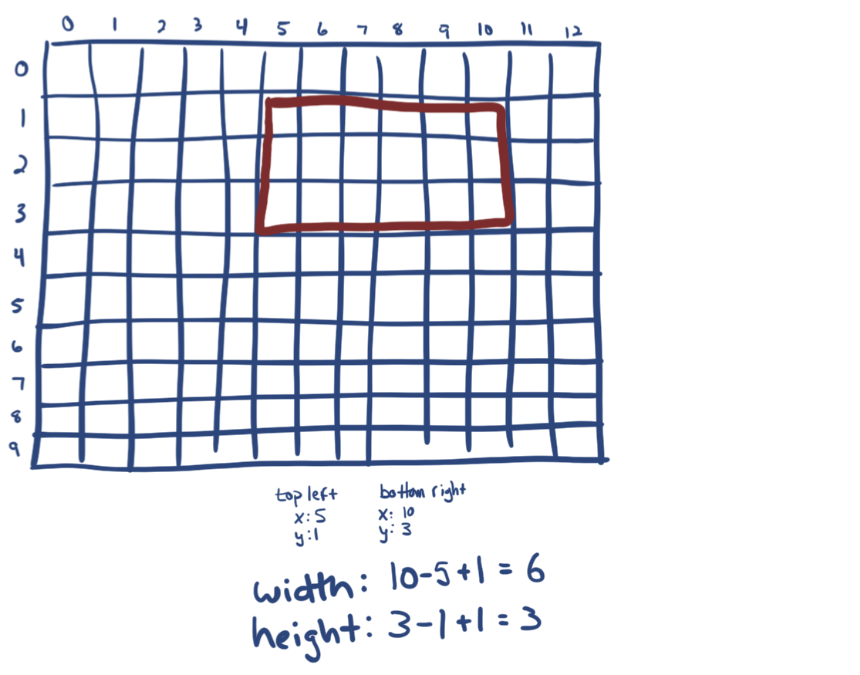 0 1 2 3 4 5 6 7 8 9 10 11 12
0
1
2
3
4
5
6
7
8
9
top left bottom right
x: 5 x: 10
y: 1 y: 3
width: 10-5+1 = 6
height: 3-1+1 = 3